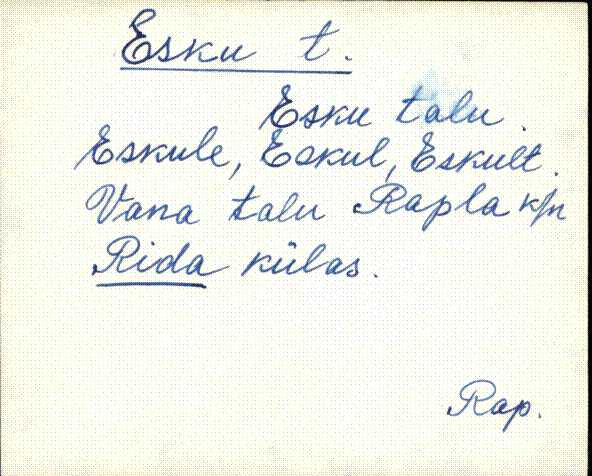 Esku t.
Esku talu.
Eskule, Eskul, Eskult.
Vana talu Rapla k/n
Rida külas.
Rap.